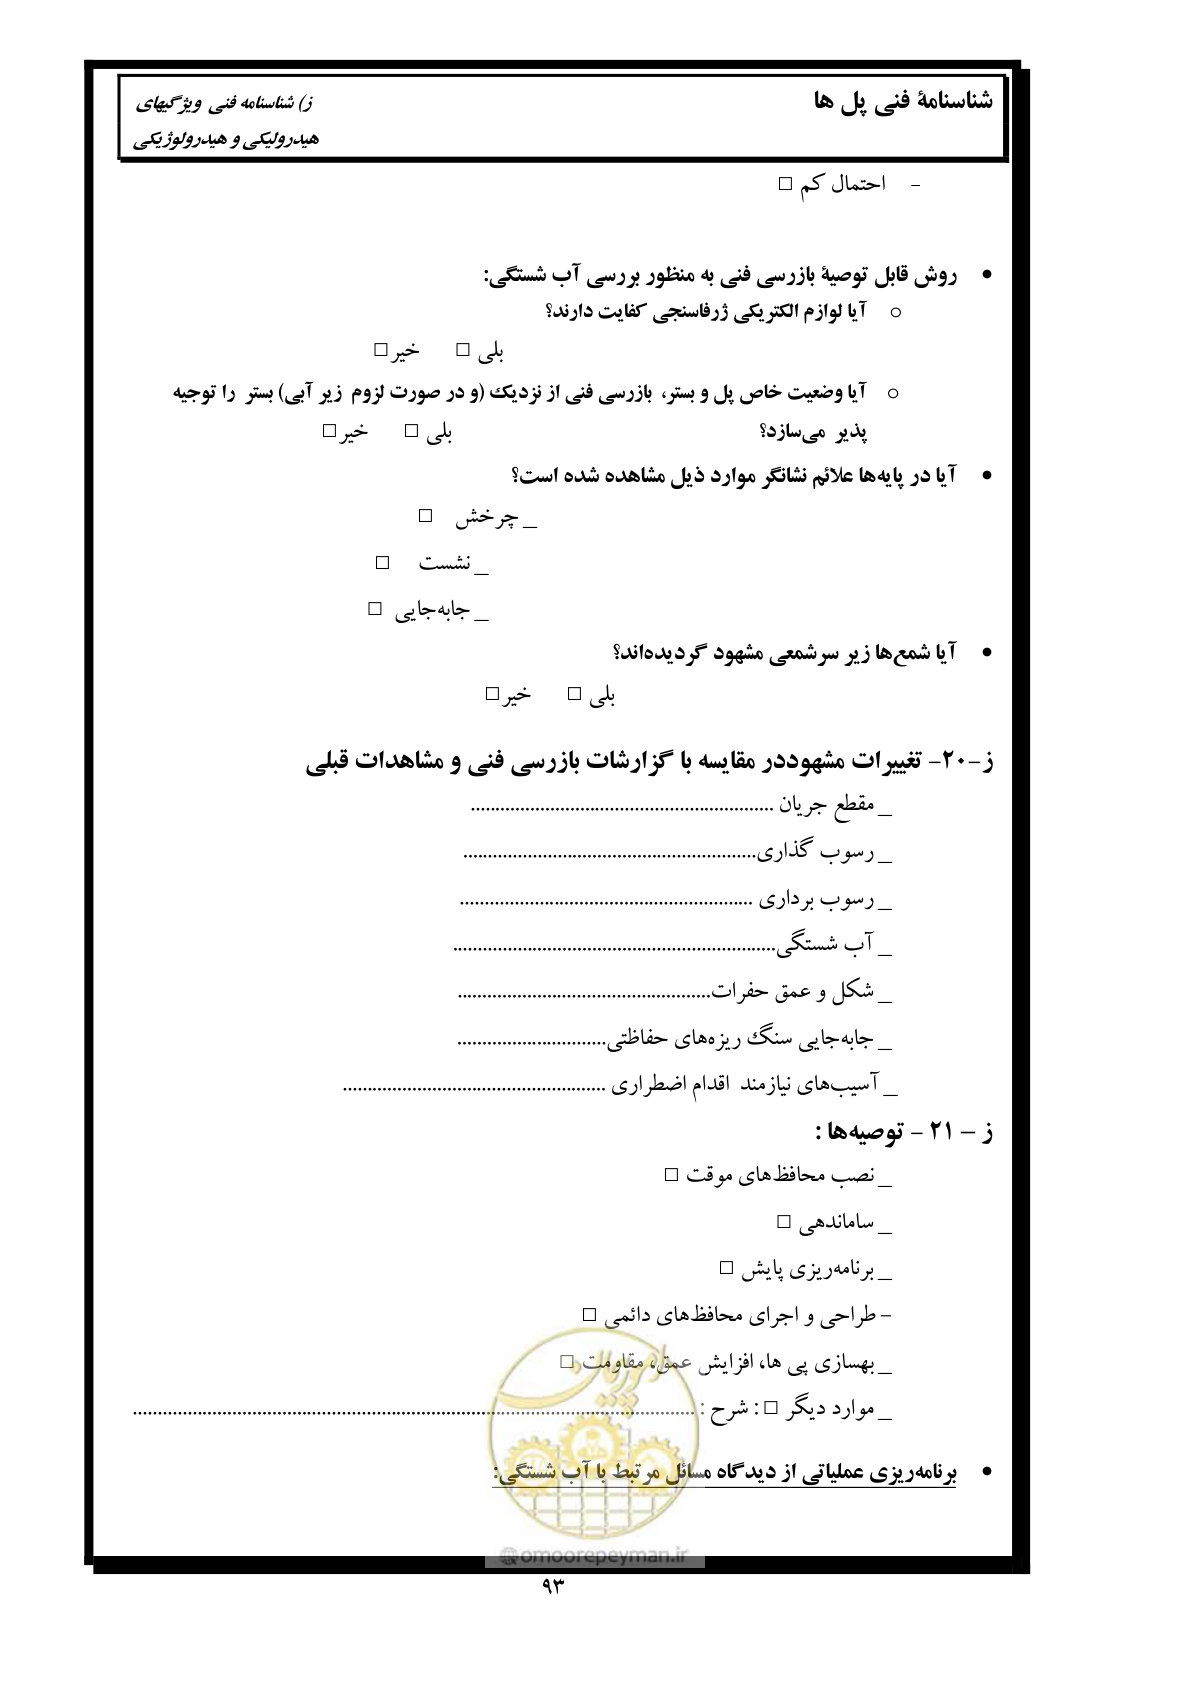 شناسنامۀ فنی پل ها
ز) شناسنامه فنی ویژگیهای
هیدرولیکی و هیدرولوژیکی
- احتمال کم □
• روش قابل توصیۀ بازرسی فنی به منظور بررسی آب شستگی:
○ آیا لوازم الکتریکی ژرفاسنجی کفایت دارند؟
بلی □ خیر □
○ آیا وضعیت خاص پل و بستر، بازرسی فنی از نزدیک (و در صورت لزوم زیر آبی) بستر را توجیه
پذیر می‌سازد؟ بلی □ خیر □
• آیا در پایه‌ها علائم نشانگر موارد ذیل مشاهده شده است؟
_ چرخش □
_ نشست □
_ جابه‌جایی □
• آیا شمع‌ها زیر سرشمعی مشهود گردیده‌اند؟
بلی □ خیر □
ز-۲۰- تغییرات مشهوددر مقایسه با گزارشات بازرسی فنی و مشاهدات قبلی
_ مقطع جریان .............................................................
_ رسوب گذاری...........................................................
_ رسوب برداری ...........................................................
_ آب شستگی.................................................................
_ شکل و عمق حفرات...................................................
_ جابه‌جایی سنگ ریزه‌های حفاظتی..............................
_ آسیب‌های نیازمند اقدام اضطراری .....................................................
ز – ۲۱ - توصیه‌ها :
_ نصب محافظ‌های موقت □
_ ساماندهی □
_ برنامه‌ریزی پایش □
- طراحی و اجرای محافظ‌های دائمی □
_ بهسازی پی ها، افزایش عمق، مقاومت □
_ موارد دیگر □ : شرح : .................................................................................................................
• برنامه‌ریزی عملیاتی از دیدگاه مسائل مرتبط با آب شستگی:
امور پیمان
@omoorepeyman.ir
۹۳